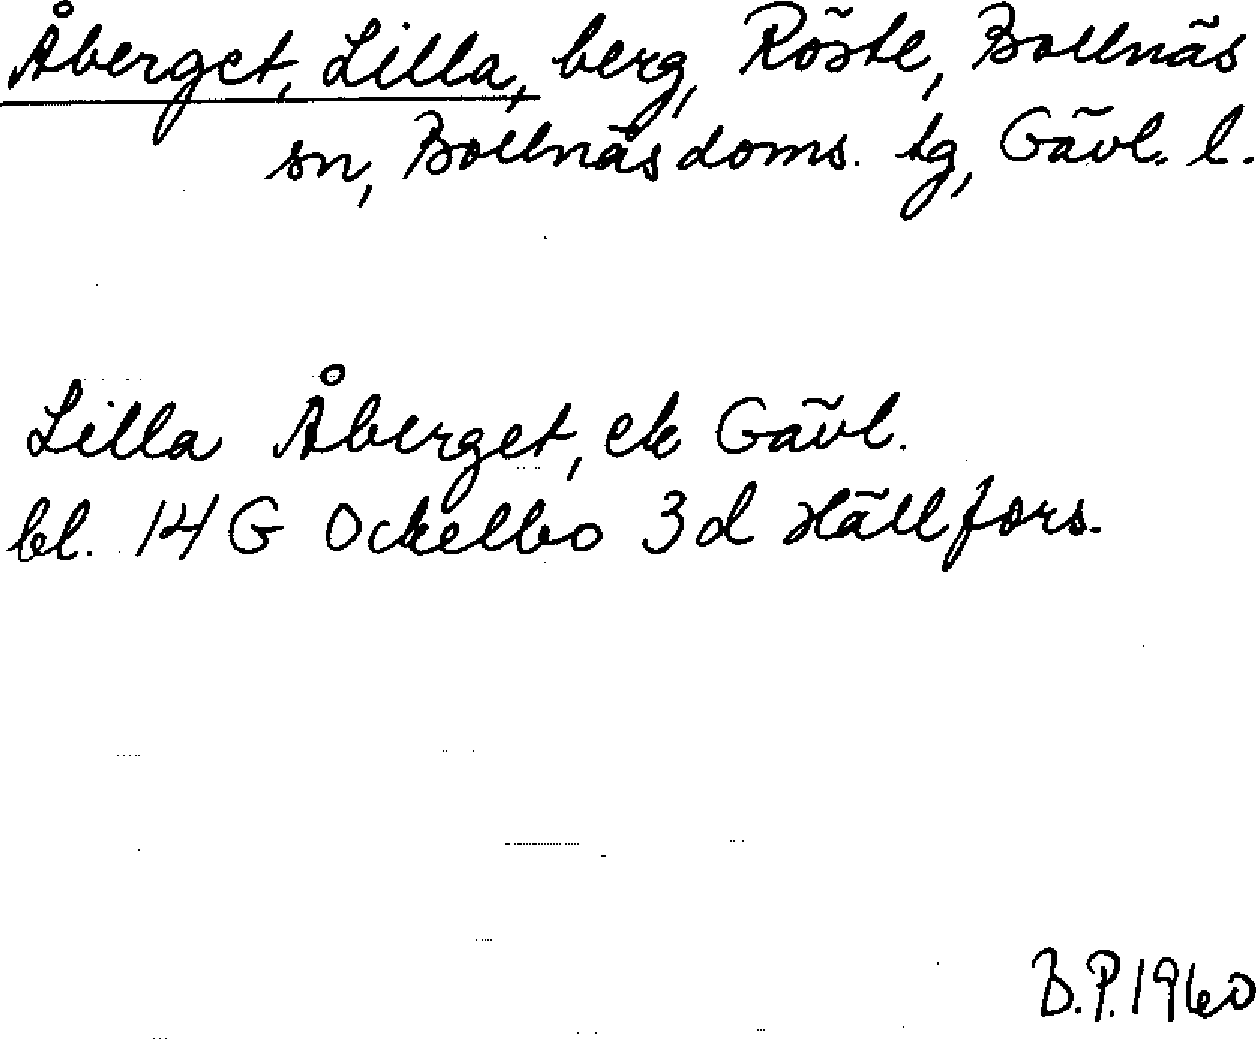 Åberget, Lilla, berg, Röste, Bollnäs
sn, Bollnäs doms. tg, Gävl. l.
Lilla Åberget, ek Gävl.
bl. 14 G Ockelbo 3d Hällfors.
B.P. 1960